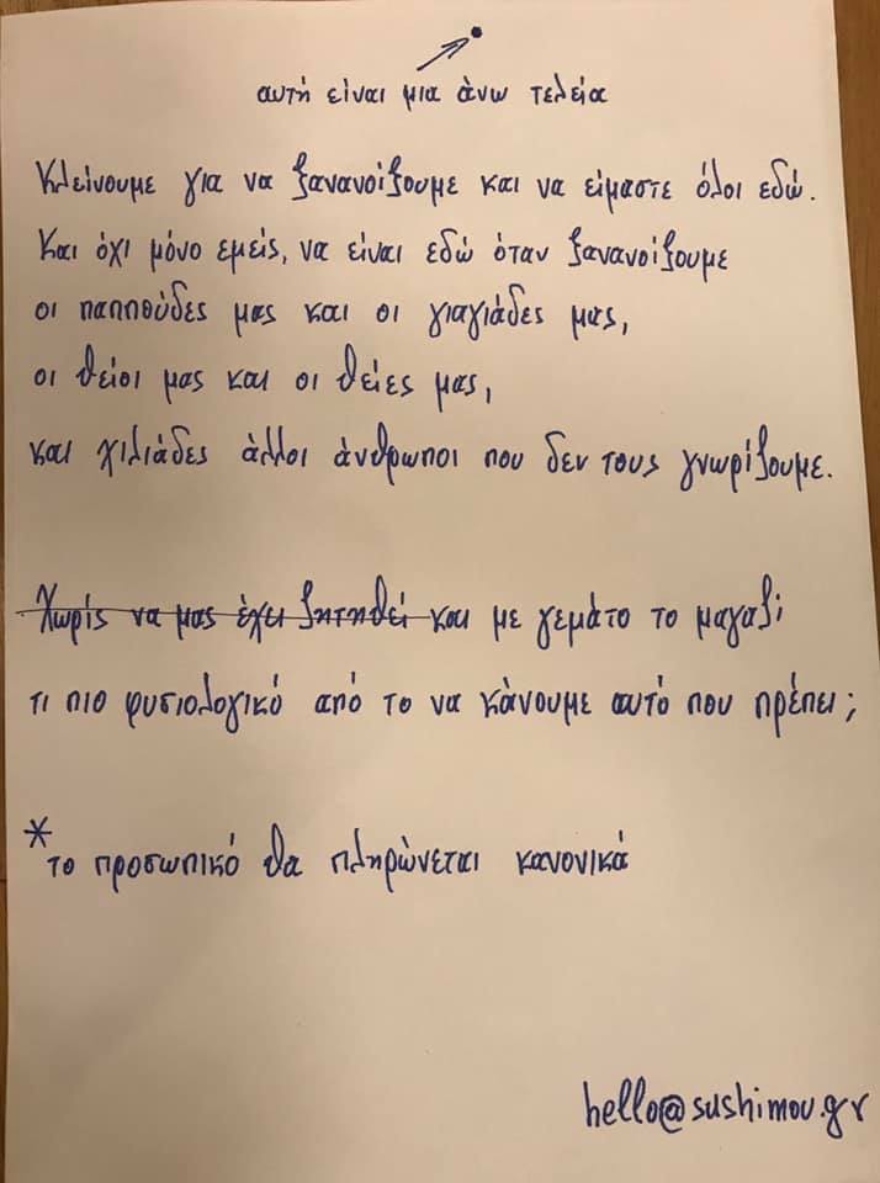 αυτή είναι μια άνω τελεία
Κλείνουμε για να ξανανοίξουμε και να είμαστε όλοι εδώ.
Και όχι μόνο εμείς, να είναι εδώ όταν ξανανοίξουμε
οι παππούδες μας και οι γιαγιάδες μας,
οι θείοι μας και οι θείες μας,
και χιλιάδες άλλοι άνθρωποι που δεν τους γνωρίζουμε.
Χωρίς να μας έχει ζητηθεί και με γεμάτο το μαγαζί
τι πιο φυσιολογικό από το να κάνουμε αυτό που πρέπει;
*το προσωπικό θα πληρώνεται κανονικά
hello@sushimou.gr